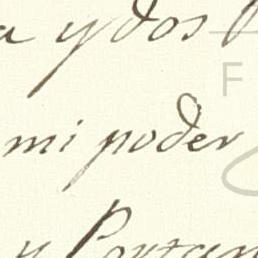 a y dos
mi poder
y Portan